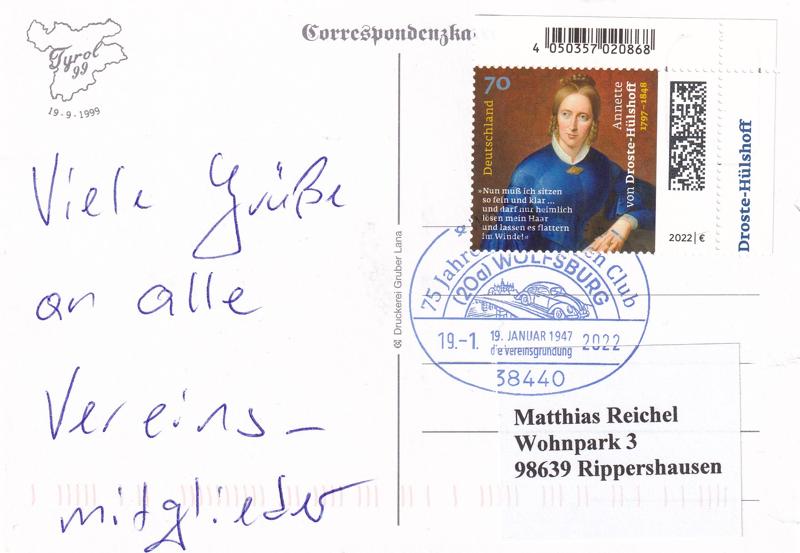 Tyrol
99
19-9-1999
Viele Grüße
an alle
Vereins-
mitglieder
Correspondenzka
© Druckerei Gruber Lana
4 050357 020868
70
Deutschland
Annette
von Droste-Hülshoff
1797–1848
»Nun muß ich sitzen
so fein und klar ...
und darf nur heimlich
lösen mein Haar
und lassen es flattern
im Winde!«
2022 | €
Droste-Hülshoff
75 Jahre Club
(20a) WOLFSBURG
19.-1. 2022
19. JANUAR 1947
die Vereinsgründung
38440
Matthias Reichel
Wohnpark 3
98639 Rippershausen